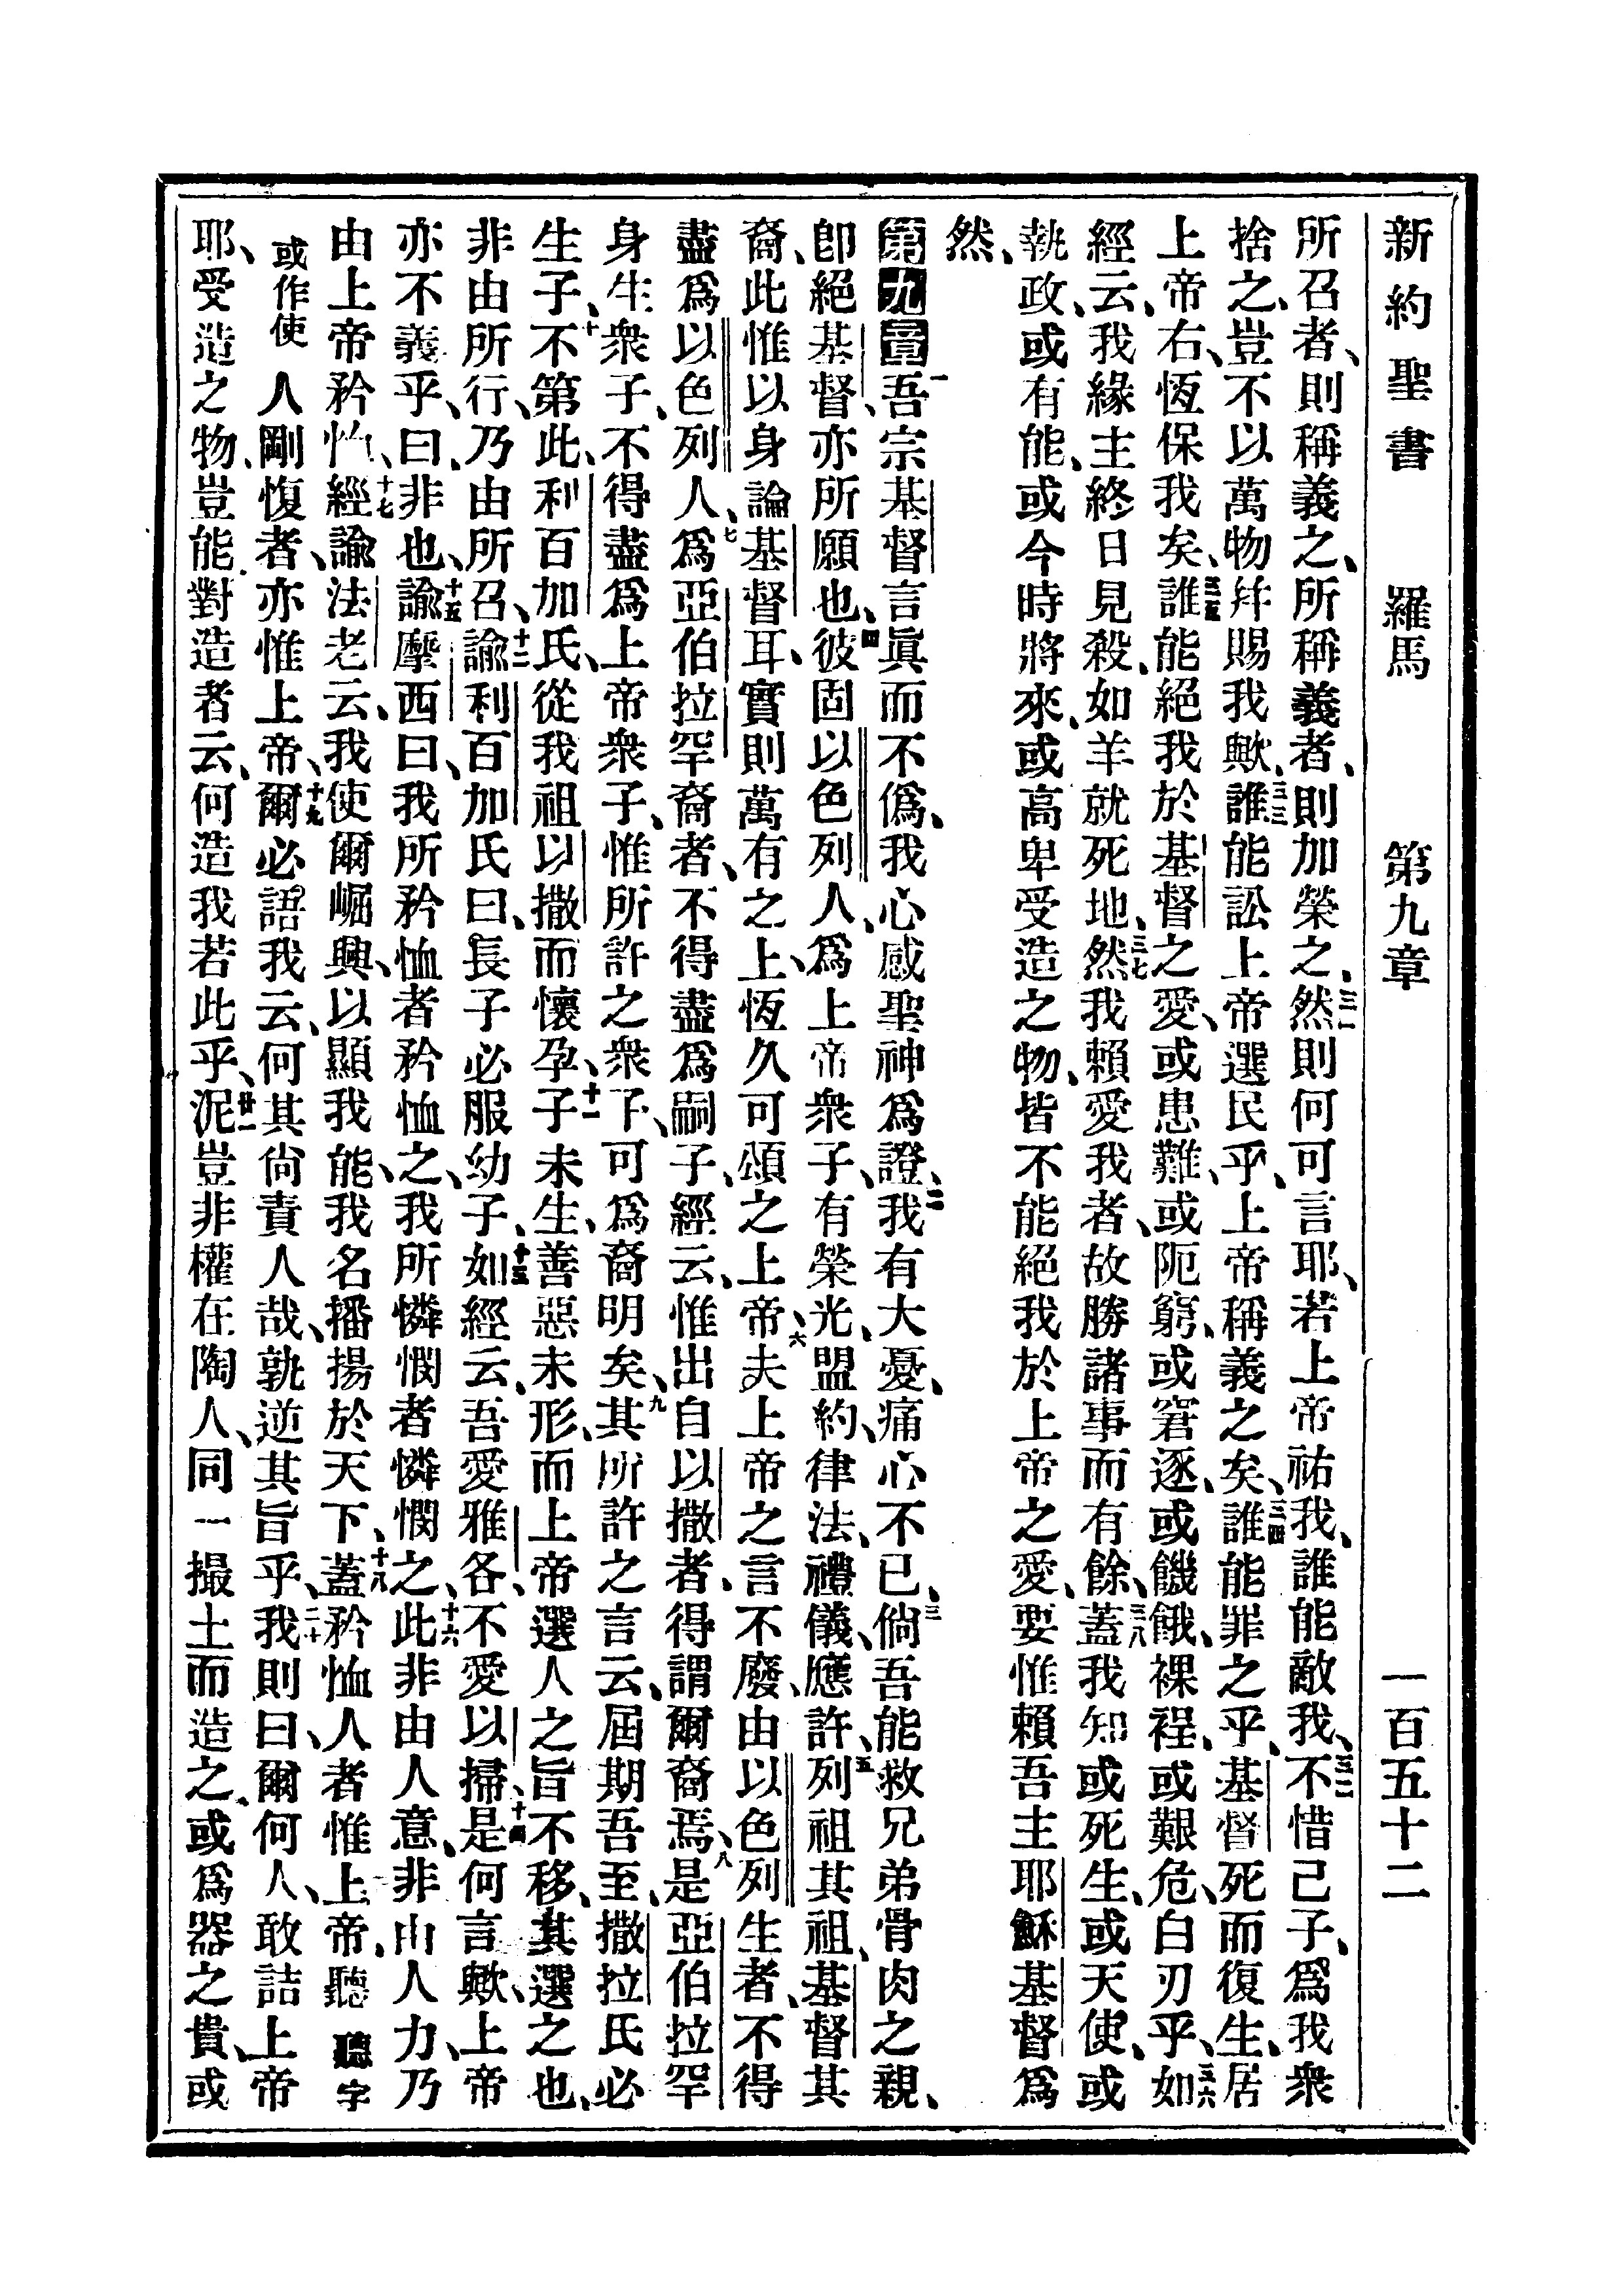 新約聖書 羅馬 第九章 一百五十二
所召者、則稱義之、所稱義者、則加榮之、三一然則何可言耶、若上帝祐我、誰能敵我、三二不惜己子、爲我衆
捨之、豈不以萬物幷賜我歟、三三誰能訟上帝選民乎、上帝稱義之矣、三四誰能罪之乎、基督死而復生、居
上帝右、恆保我矣、三五誰能絕我於基督之愛、或患難、或阨窮、或窘逐、或饑餓、裸裎、或艱危、白刃乎、三六如
經云、我緣主終日見殺、如羊就死地、三七然我賴愛我者、故勝諸事而有餘、三八蓋我知或死生、或天使、或
執政、或有能、或今時將來、或高卑受造之物、皆不能絕我於上帝之愛、要惟賴吾主耶穌基督爲
然、
第九章一吾宗基督言眞而不僞、我心感聖神爲證、二我有大憂、痛心不已、三倘吾能救兄弟骨肉之親、
卽絕基督、亦所願也、四彼固以色列人、爲上帝衆子、有榮光、盟約、律法、禮儀、應許、五列祖其祖、基督其
裔、此惟以身論基督耳、實則萬有之上、恆久可頌之上帝、六夫上帝之言不廢、由以色列生者、不得
盡爲以色列人、七爲亞伯拉罕裔者、不得盡爲嗣子、經云、惟出自以撒者、得謂爾裔焉、八是亞伯拉罕
身生衆子、不得盡爲上帝衆子、惟所許之衆子、可爲裔明矣、九其所許之言云、屆期吾至、撒拉氏必
生子、十不第此、利百加氏、從我祖以撒而懷孕、十一子未生、善惡未形、而上帝選人之旨不移、其選之也、
非由所行、乃由所召、十二諭利百加氏曰、長子必服幼子、十三如經云、吾愛雅各、不愛以掃、十四是何言歟、上帝
亦不義乎、曰、非也、十五諭摩西曰、我所矜恤者矜恤之、我所憐憫者憐憫之、十六此非由人意、非由人力、乃
由上帝矜恤、十七經諭法老云、我使爾崛興、以顯我能、我名播揚於天下、十八蓋矜恤人者惟上帝、聽聽字
或作使人剛愎者、亦惟上帝、十九爾必語我云、何其尙責人哉、孰逆其旨乎、二十我則曰、爾何人、敢詰上帝
耶、受造之物、豈能對造者云、何造我若此乎、廿一泥豈非權在陶人、同一撮土而造之、或爲器之貴、或